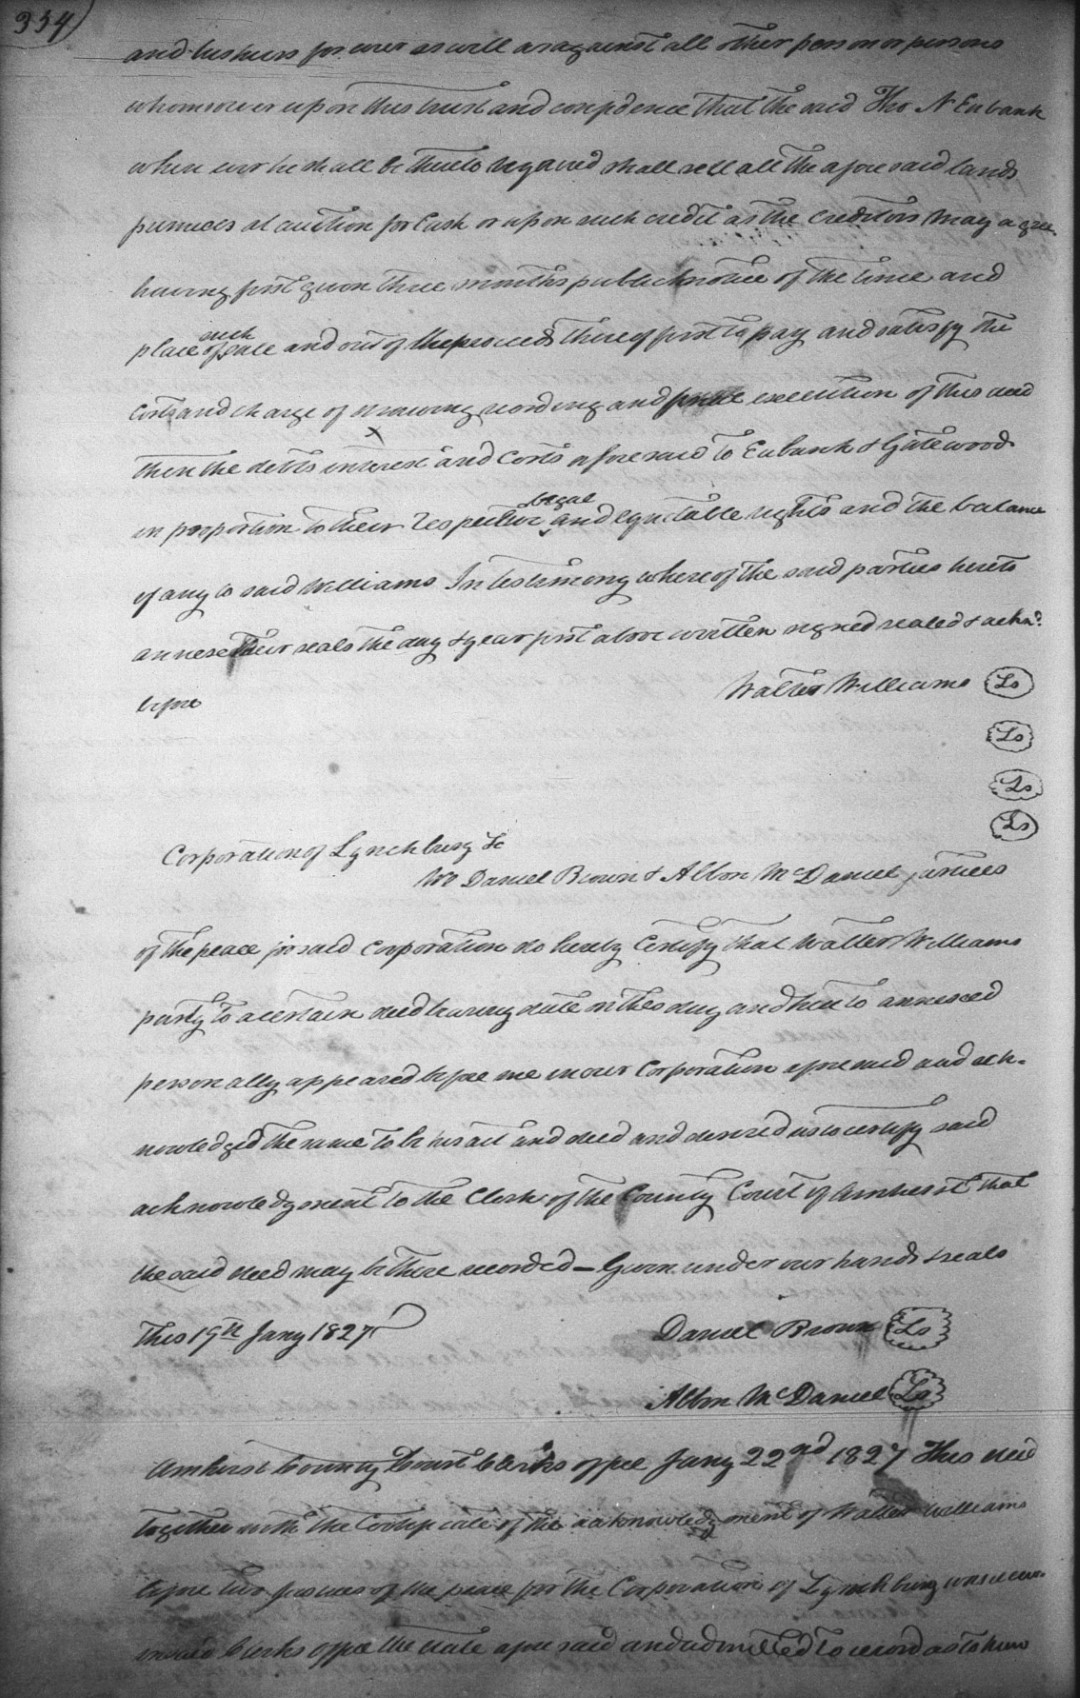 354)
and his heirs forever as well as against all other person or persons
whomsoever upon this trust and confidence that the said Tho N Eubank
when ever he shall be thereto required shall sell all the aforesaid lands
premises at auction for Cash or upon such credit as the creditors may agree
having first given three months public notice of the time and
place of such sale and out of the proceeds thereof first to pay and satisfy the
costs and charge of drawing recording and execution of this deed
then the debts interest and Costs aforesaid to Eubank & Gatewood
in proportion to their respective legal and equitable rights and the balance
if any to said Williams In testimony whereof the said parties hereto
annexe their seals the day & year first above written signed sealed & ackd.
before Walter Williams Ls
Ls
Ls
Ls
Corporation of Lynchburg Sc
We Daniel Brown & Albon McDaniel justices
of the peace for said corporation do hereby Certify that Walter Williams
party to a certain deed bearing date on this day and hereto annexed
personally appeared before me in our Corporation aforesaid and ack-
nowledged the same to be his act and deed and desired us to certify said
acknowledgment to the Clerk of the County Court of Amherst that
the said deed may be there recorded - Given under our hands & seals
This 19th Jany 1827 Daniel Brown Ls
Albon McDaniel Ls
Amherst County Court Clerks office Jany 22nd 1827 This deed
together with the Certificate of the acknowledgment of Walter Williams
before two justices of the peace for the Corporation of Lynchburg was
in said Clerks office the date aforesaid and admitted to record as to him